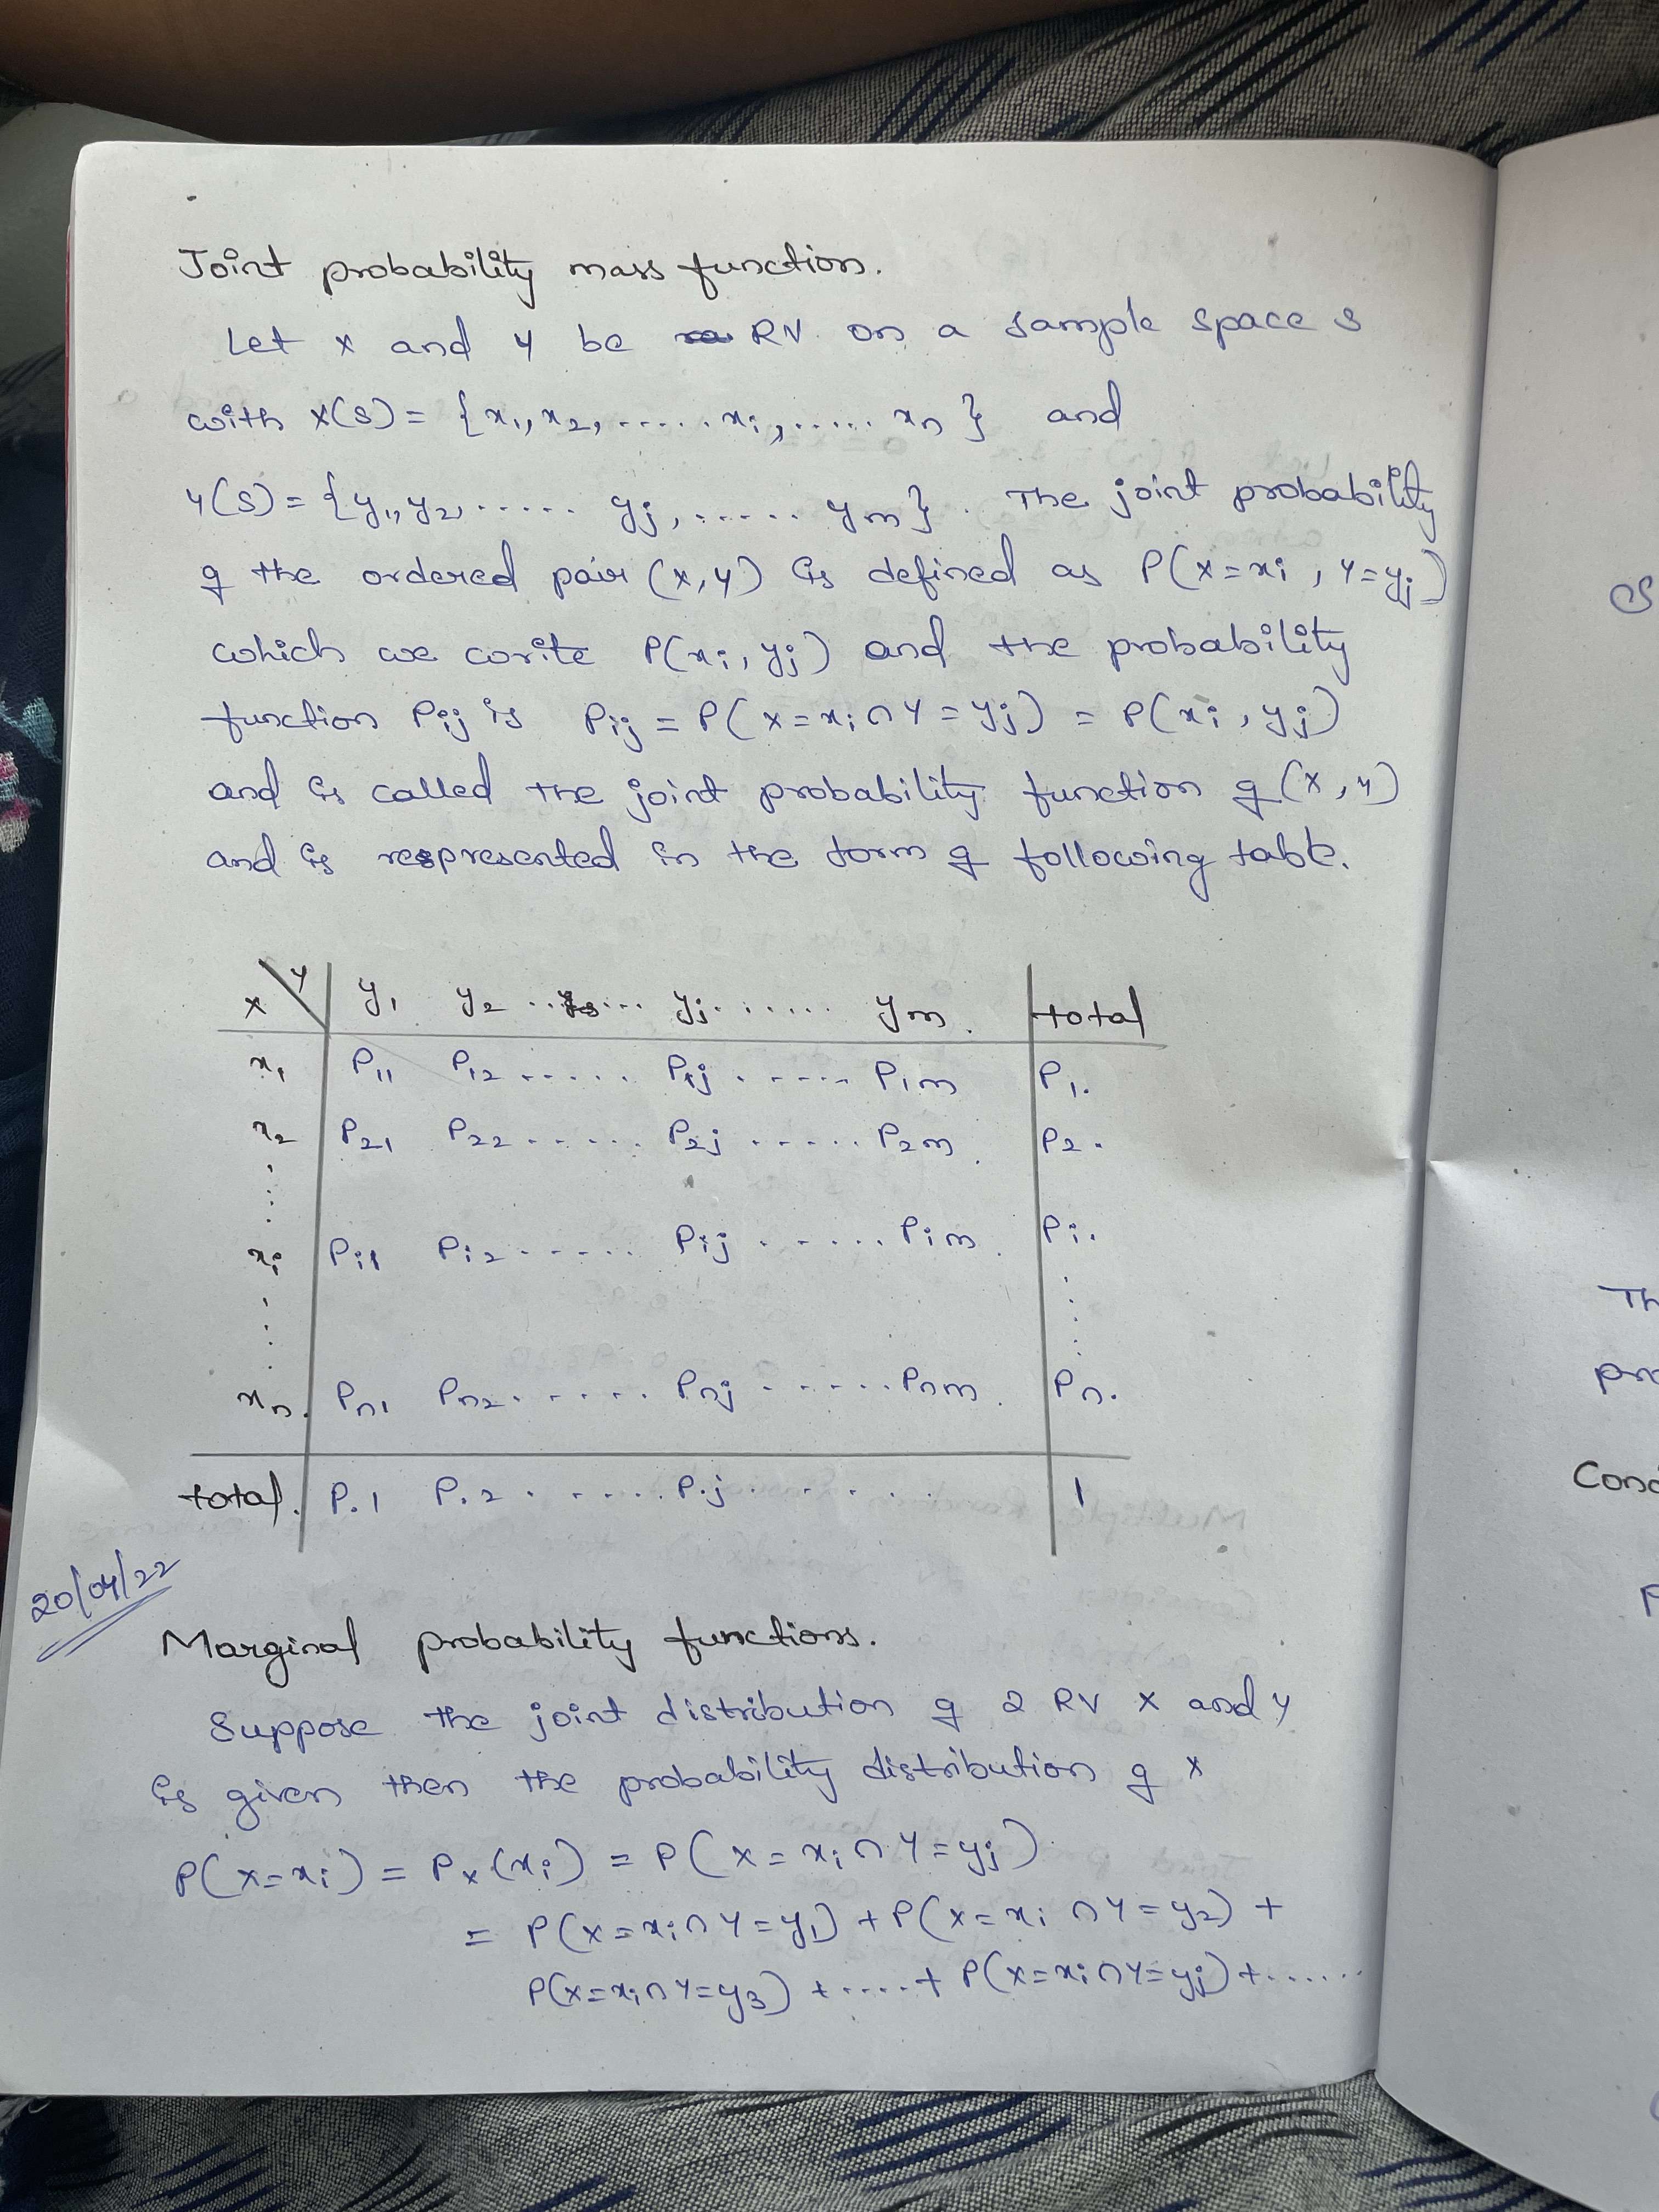 Joint probability mass function.
Let X and Y be RV on a sample space S
with X(S) = {x₁, x₂, ..... xᵢ, ..... xₙ} and
Y(S) = {y₁, y₂, ...... yⱼ, ...... yₘ}. The joint probability
of the ordered pair (X, Y) is defined as P(X = xᵢ, Y = yⱼ)
which we write P(xᵢ, yⱼ) and the probability
function Pᵢⱼ is Pᵢⱼ = P(X = xᵢ ∩ Y = yⱼ) = P(xᵢ, yⱼ)
and is called the joint probability function of (X, Y)
and is respresented in the form of following table.
X \ Y y₁ y₂ ..... yⱼ ...... yₘ. total
x₁ P₁₁ P₁₂ ...... P₁ⱼ ...... P₁ₘ P₁.
x₂ P₂₁ P₂₂ ...... P₂ⱼ ...... P₂ₘ. P₂.
xᵢ Pᵢ₁ Pᵢ₂ ...... Pᵢⱼ ...... Pᵢₘ. Pᵢ.
xₙ. Pₙ₁ Pₙ₂ ...... Pₙⱼ ...... Pₙₘ. Pₙ.
total. P.₁ P.₂ ...... P.ⱼ ...... 1
20/04/22
Marginal probability functions.
Suppose the joint distribution of 2 RV X and Y
is given then the probability distribution of X
P(X = xᵢ) = Pₓ(xᵢ) = P(X = xᵢ ∩ Y = yⱼ)
= P(X = xᵢ ∩ Y = y₁) + P(X = xᵢ ∩ Y = y₂) +
P(X = xᵢ ∩ Y = y₃) + ..... + P(X = xᵢ ∩ Y = yⱼ) + ......
Th
pro
Cond
P